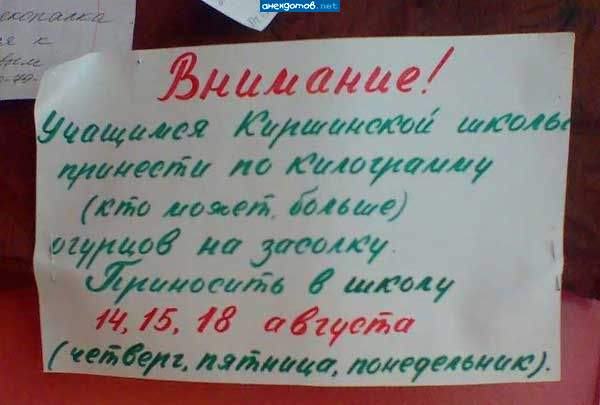 анекдотов.net
Внимание!
Учащимся Киршинской школы
принести по килограмму
(кто может, больше)
огурцов на засолку.
Приносить в школу
14, 15, 18 августа
(четверг, пятница, понедельник).